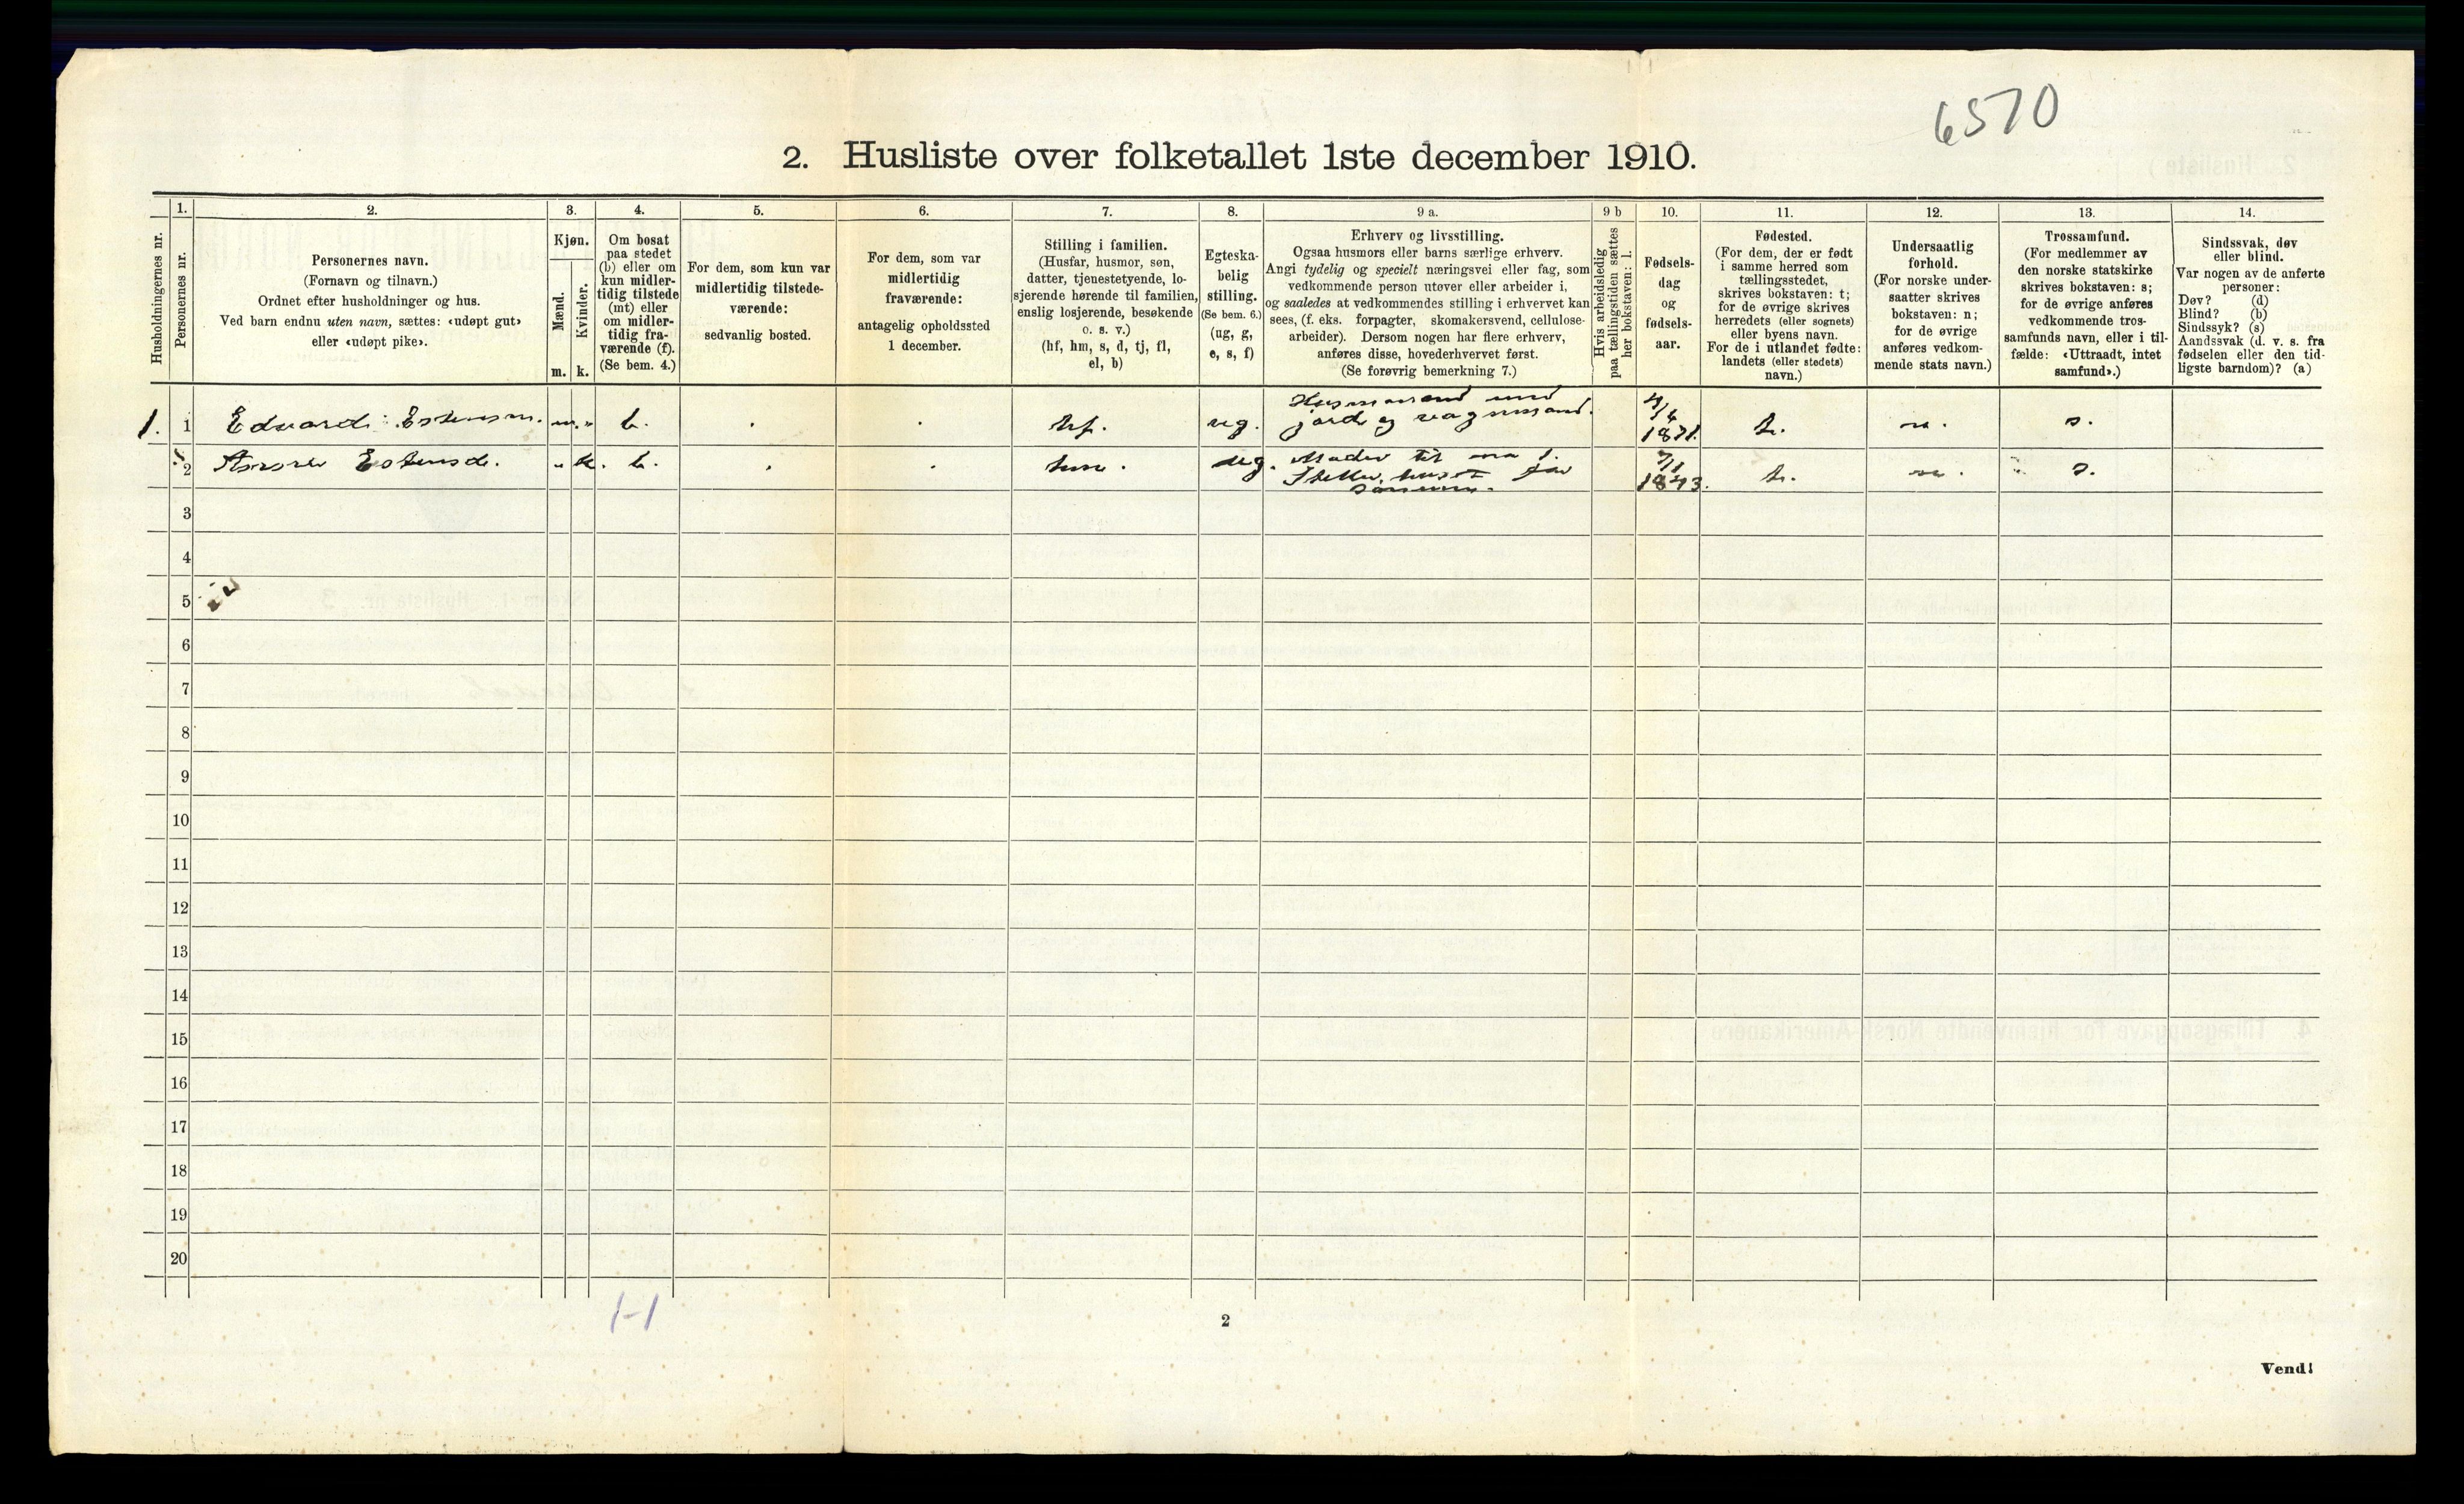 6570
2. Husliste over folketallet 1ste december 1910.
Husholdningernes nr.
1.
Personernes nr.
2.
Personernes navn.
(Fornavn og tilnavn.)
Ordnet efter husholdninger og hus.
Ved barn endnu uten navn, sættes: «udøpt gut»
eller «udøpt pike».
3.
Kjøn.
Mænd.
Kvinder.
m. k.
4.
Om bosat
paa stedet
(b) eller om
kun midler-
tidig tilstede
(mt) eller
om midler-
tidig fra-
værende (f).
(Se bem. 4.)
5.
For dem, som kun var
midlertidig tilstede-
værende:
sedvanlig bosted.
6.
For dem, som var
midlertidig
fraværende:
antagelig opholdssted
1 december.
7.
Stilling i familien.
(Husfar, husmor, søn,
datter, tjenestetyende, lo-
sjerende hørende til familien,
enslig losjerende, besøkende
o. s. v.)
(hf, hm, s, d, tj, fl,
el, b)
8.
Egteska-
belig
stilling.
(Se bem. 6.)
(ug, g,
e, s, f)
9 a.
Erhverv og livsstilling.
Ogsaa husmors eller barns særlige erhverv.
Angi tydelig og specielt næringsvei eller fag, som
vedkommende person utøver eller arbeider i,
og saaledes at vedkommendes stilling i erhvervet kan
sees, (f. eks. forpagter, skomakersvend, cellulose-
arbeider). Dersom nogen har flere erhverv,
anføres disse, hovederhvervet først.
(Se forøvrig bemerkning 7.)
9 b
Hvis arbeidsledig
paa tællingstiden sættes
her bokstaven: l.
10.
Fødsels-
dag
og
fødsels-
aar.
11.
Fødested.
(For dem, der er født
i samme herred som
tællingsstedet,
skrives bokstaven: t;
for de øvrige skrives
herredets (eller sognets)
eller byens navn.
For de i utlandet fødte:
landets (eller stedets)
navn.)
12.
Undersaatlig
forhold.
(For norske under-
saatter skrives
bokstaven: n;
for de øvrige
anføres vedkom-
mende stats navn.)
13.
Trossamfund.
(For medlemmer av
den norske statskirke
skrives bokstaven: s;
for de øvrige anføres
vedkommende tros-
samfunds navn, eller i til-
fælde: «Uttraadt, intet
samfund».)
14.
Sindssvak, døv
eller blind.
Var nogen av de anførte
personer:
Døv? (d)
Blind? (b)
Sindssyk? (s)
Aandssvak (d. v. s. fra
fødselen eller den tid-
ligste barndom)? (a)
1. 1 Edvard Estensen. m. " b. hf. ug. Husmand med
jord og 1871. t. n. s.
2 Estensd. " k. b. Moder til no 1.
Steller huset for
sønnen. 7/1
1843. t. n. s.
3
4
5
6
7
8
9
10
11
12
13
14
15
16
17
18
19
20
1-1
2
Vend!